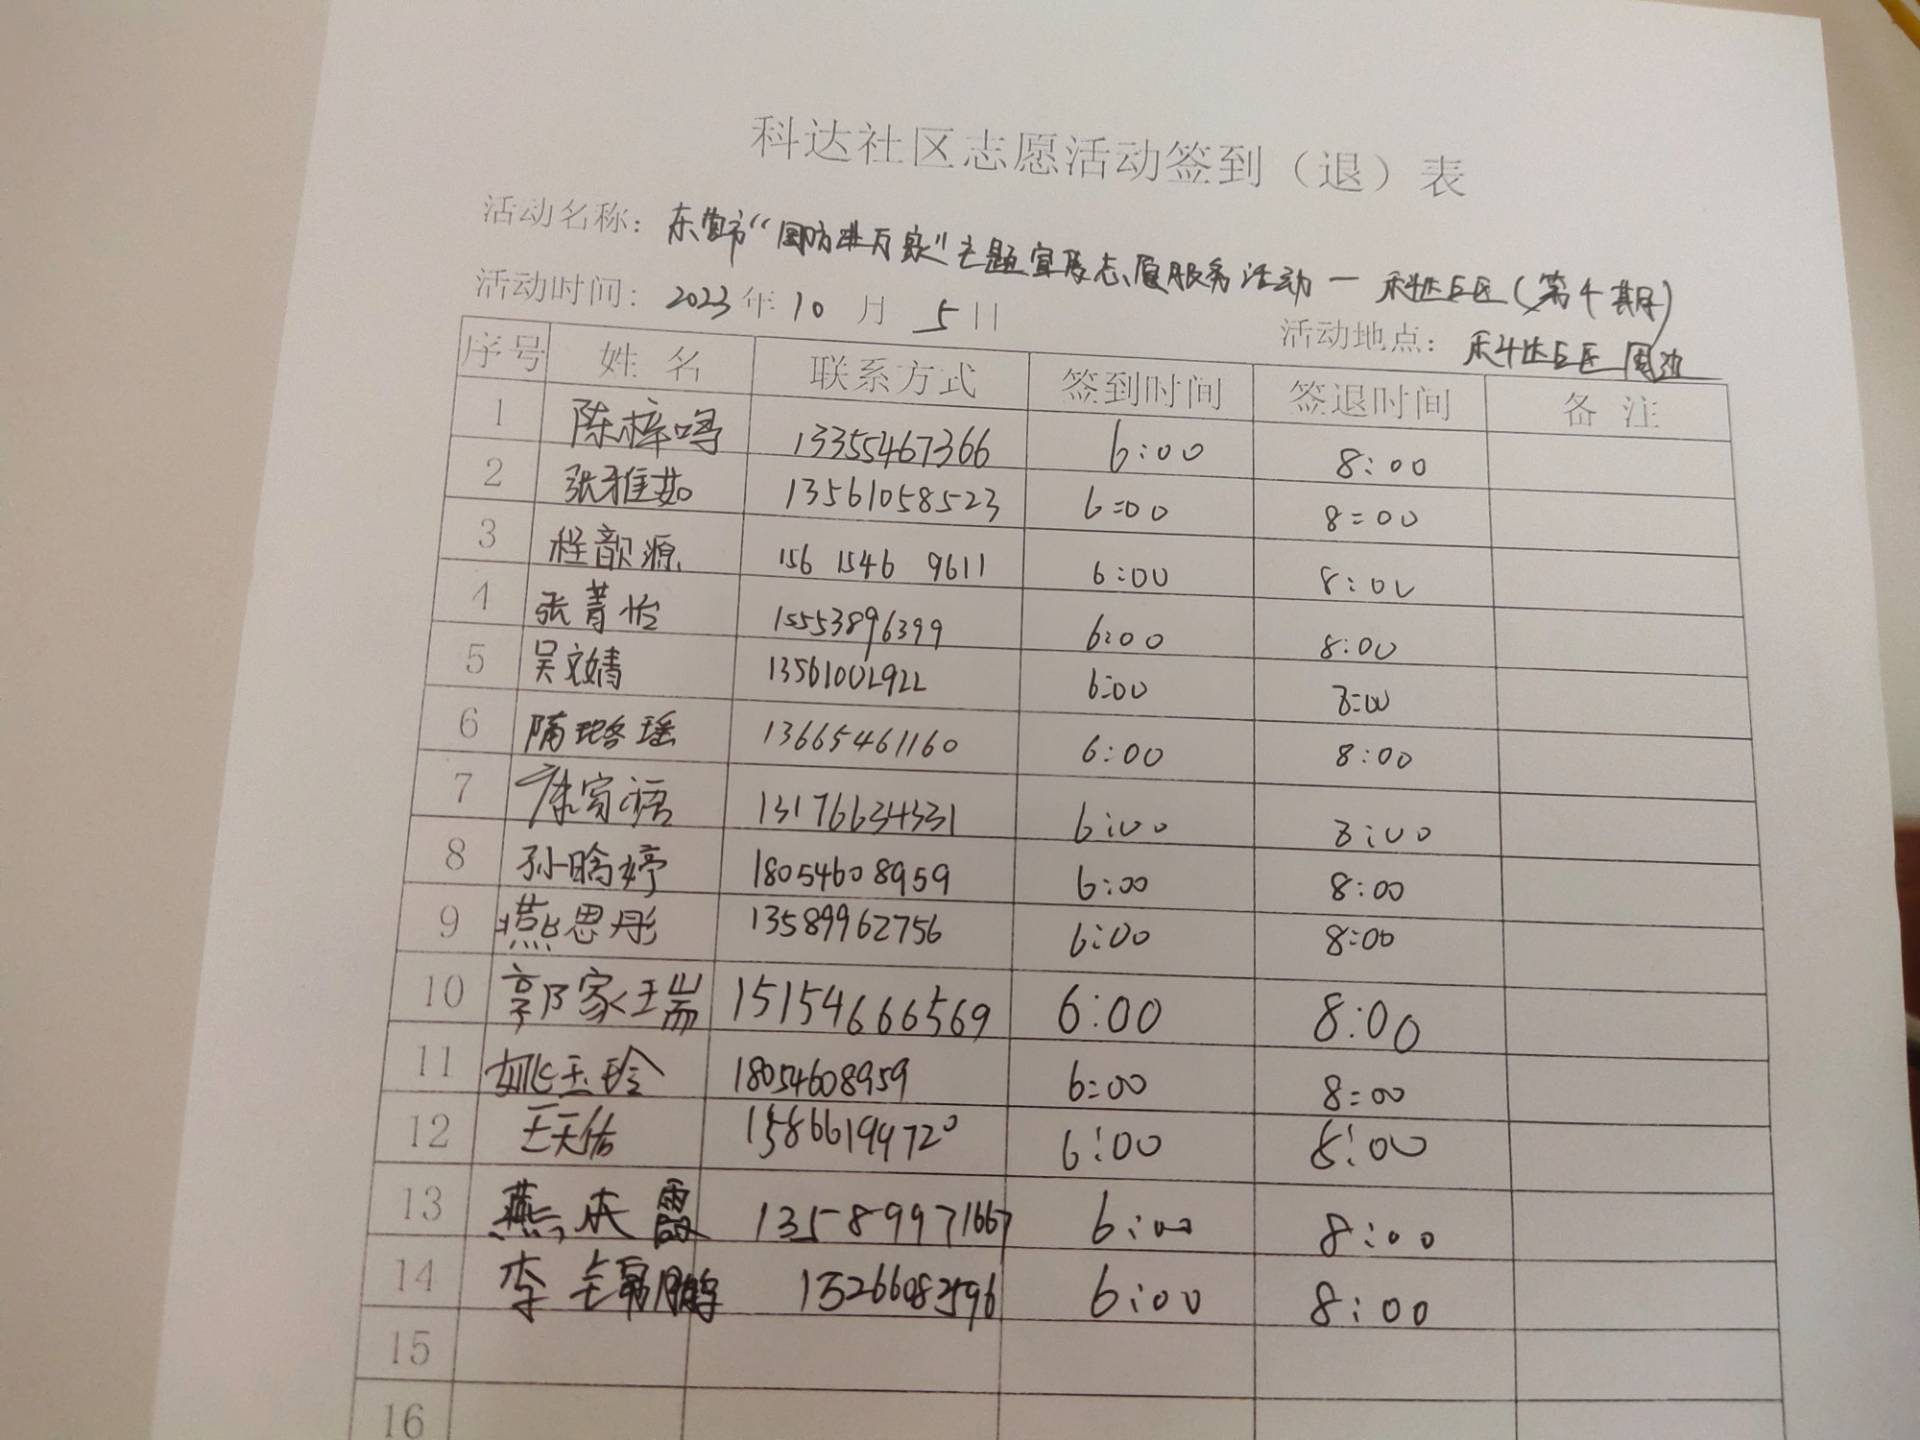 科达社区志愿活动签到（退）表
活动名称：东营市“国防进万家”主题宣传志愿服务活动一科达社区（第十期）
活动时间：2023年10月5日 活动地点：科达社区周边
序号 姓名 联系方式 签到时间 签退时间 备注
1 陈梓鸣 13355467366 6:00 8:00
2 张雅茹 13561058523 6:00 8:00
3 程歆源 156 1546 9611 6:00 8:00
4 张菁怡 15553896399 6:00 8:00
5 吴文婧 13561002922 6:00 8:00
6 隋珞瑶 13665461160 6:00 8:00
7 康家语 13176634331 6:00 8:00
8 孙晗婷 18054608959 6:00 8:00
9 燕思彤 13589962756 6:00 8:00
10 郭家瑞 15154666569 6:00 8:00
11 姚玉玲 18054608959 6:00 8:00
12 王天佑 15866199720 6:00 8:00
13 燕庆霞 13589971667 6:00 8:00
14 李鹏 6:00 8:00
15
16